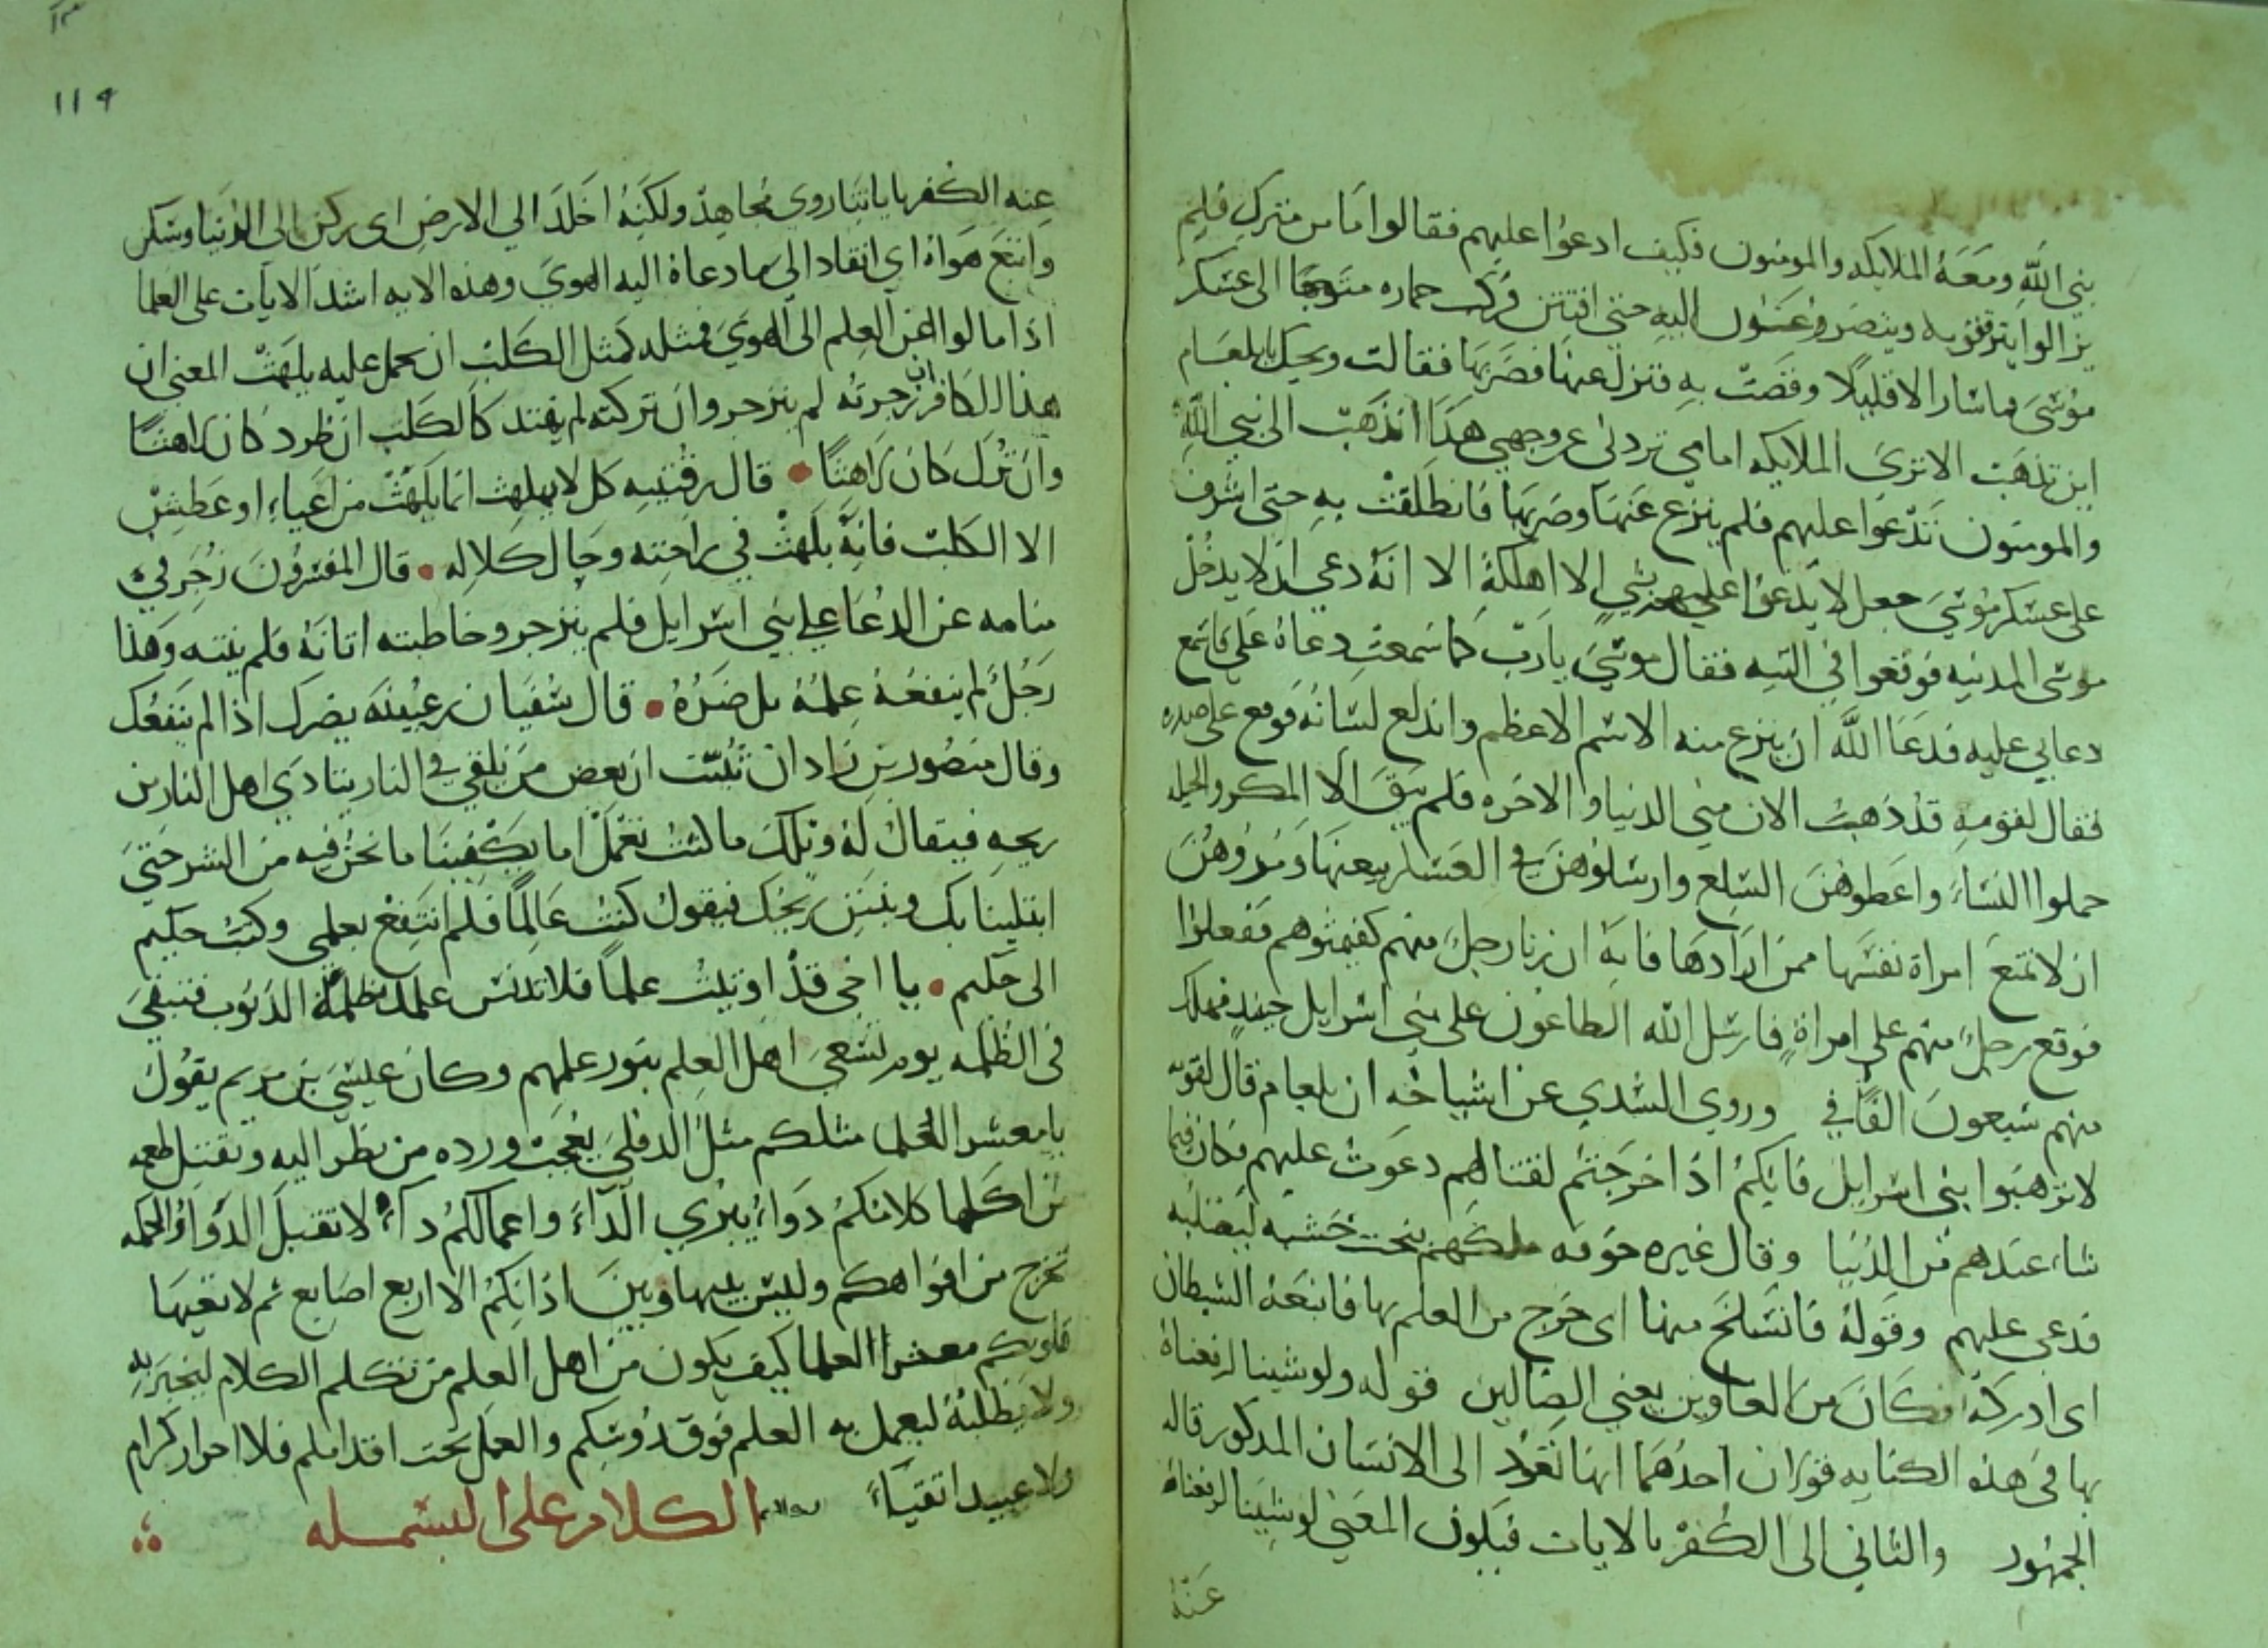 نبي الله ومعه الملايكه والمومنون فكيف ادعوا عليهم فقالوا ما من مترك فلم
يزالوا يترققونه ويتضرعون اليه حتى افتتن فركب حماره متوجها الى عسكر
موسى فما سار الا قليلا وقصت به فنزل عنها فضربها فقالت ويحك يا بلعام
اين تذهب الا ترى الملايكه امامي تردني عن وجهي هذا اتذهب الى نبي الله
والمومنون تدعوا عليهم فلم ينزع عنها وضربها فانطلقت به حتى اشرف
على عسكر موسى جعل لا يدعوا عليهم بشي الا اهلكه الا انه دعي ان لا يدخل
موسى المدينه فوقعوا في التيه فقال موسى يا رب كما سمعت دعاه علي فاسمع
دعاي عليه فدعا الله ان ينزع منه الاسم الاعظم واندلع لسانه فوقع على صدره
فقال لقومه قد ذهبت الان مني الدنيا والاخره فلم يبق الا المكر والحيله
حملوا النساء واعطوهن السلع وارسلوهن في العسكر يبعنها ومروهن
ان لا تمنع امراة نفسها ممن ارادها فانه ان زنا رجل منهم كفيتوهم ففعلوا
فوقع رجل منهم على امراة فارسل الله الطاعون على بني اسرايل حينيذ فهلك
منهم سبعون الفا وروى السدي عن اشياخه ان بلعام قال لقومه
لا ترهبوا بني اسرايل فانكم اذا خرجتم لقتالهم دعوت عليهم فكان فيما
شاء عندهم من الدنيا وقال غيره خوفه ملكهم بنحت خشبه ليصلبه
فدعى عليهم وقوله فانسلخ منها اى خرج من العلم بها فاتبعه الشيطان
اى ادركه فكان من الغاوين يعني الضالين قوله ولو شينا لرفعناه
بها في هذه الكنايه قولان احدهما انها تعود الى الانسان المذكور قاله
الجمهور والثاني الى الكفر بالايات فيكون المعنى لو شينا لرفعنا
عنه
119
عنه الكفر باياتنا روي مجاهد ولكنه اخلد الي الارض اى ركن الى الدنيا وسكن
واتبع هواه اي انقاد الى ما دعاه اليه الهوي وهذه الايه اشد الايات على العلما
اذا مالوا عن العلم الى الهوي فمثله كمثل الكلب ان تحمل عليه يلهث المعنى ان
هذا الكافر ان زجرته لم ينزجر وان تركته لم يهتد كالكلب ان طرد كان لاهثا
وان ترك كان لاهثا قال بن قتيبه كل لاهث انما يلهث من اعياء او عطش
الا الكلب فانه يلهث في راحته وحال كلاله قال المفسرون زجر في
منامه عن الدعا على بني اسرايل فلم ينزجر وخاطبته اتانه فلم ينته وهذا
رجل لم ينفعه علمه بل ضره قال سفيان بن عيينه يضرك اذا لم ينفعك
وقال منصور بن زاذان نبئت ان بعض من يلقى في النار يتادى اهل النار من
ريحه فيقال له ويلك ما كنت تعمل اما يكفينا ما نحن فيه من الشر حتى
ابتلينا بك وبنتن ريحك فيقول كنت عالما فلم انتفع بعلمي وكتب حكيم
الى حكيم يا اخي قد اوتيت علما فلا تدنس علمك بظلمة الذنوب فتبقى
في الظلمه يوم يسعى اهل العلم بنور علمهم وكان عيسى بن مريم يقول
يا معشر العلما مثلكم مثل الدفلى يعجب ورده من نظر اليه ويقتل طعمه
من اكلها كلامكم دواء يبري الداء واعمالكم داء لا تقبل الدواء والحكمه
تخرج من افواهكم وليس بينها وبين اذانكم الا اربع اصابع ثم لا تعيها
قلوبكم معشر العلما كيف يكون من اهل العلم من تكلم الكلام ليخبر به
ولا يطلبه ليعمل به العلم فوق روسكم والعمل تحت اقدامكم فلا احرار كرام
ولا عبيد اتقياء الكلام على البسمله